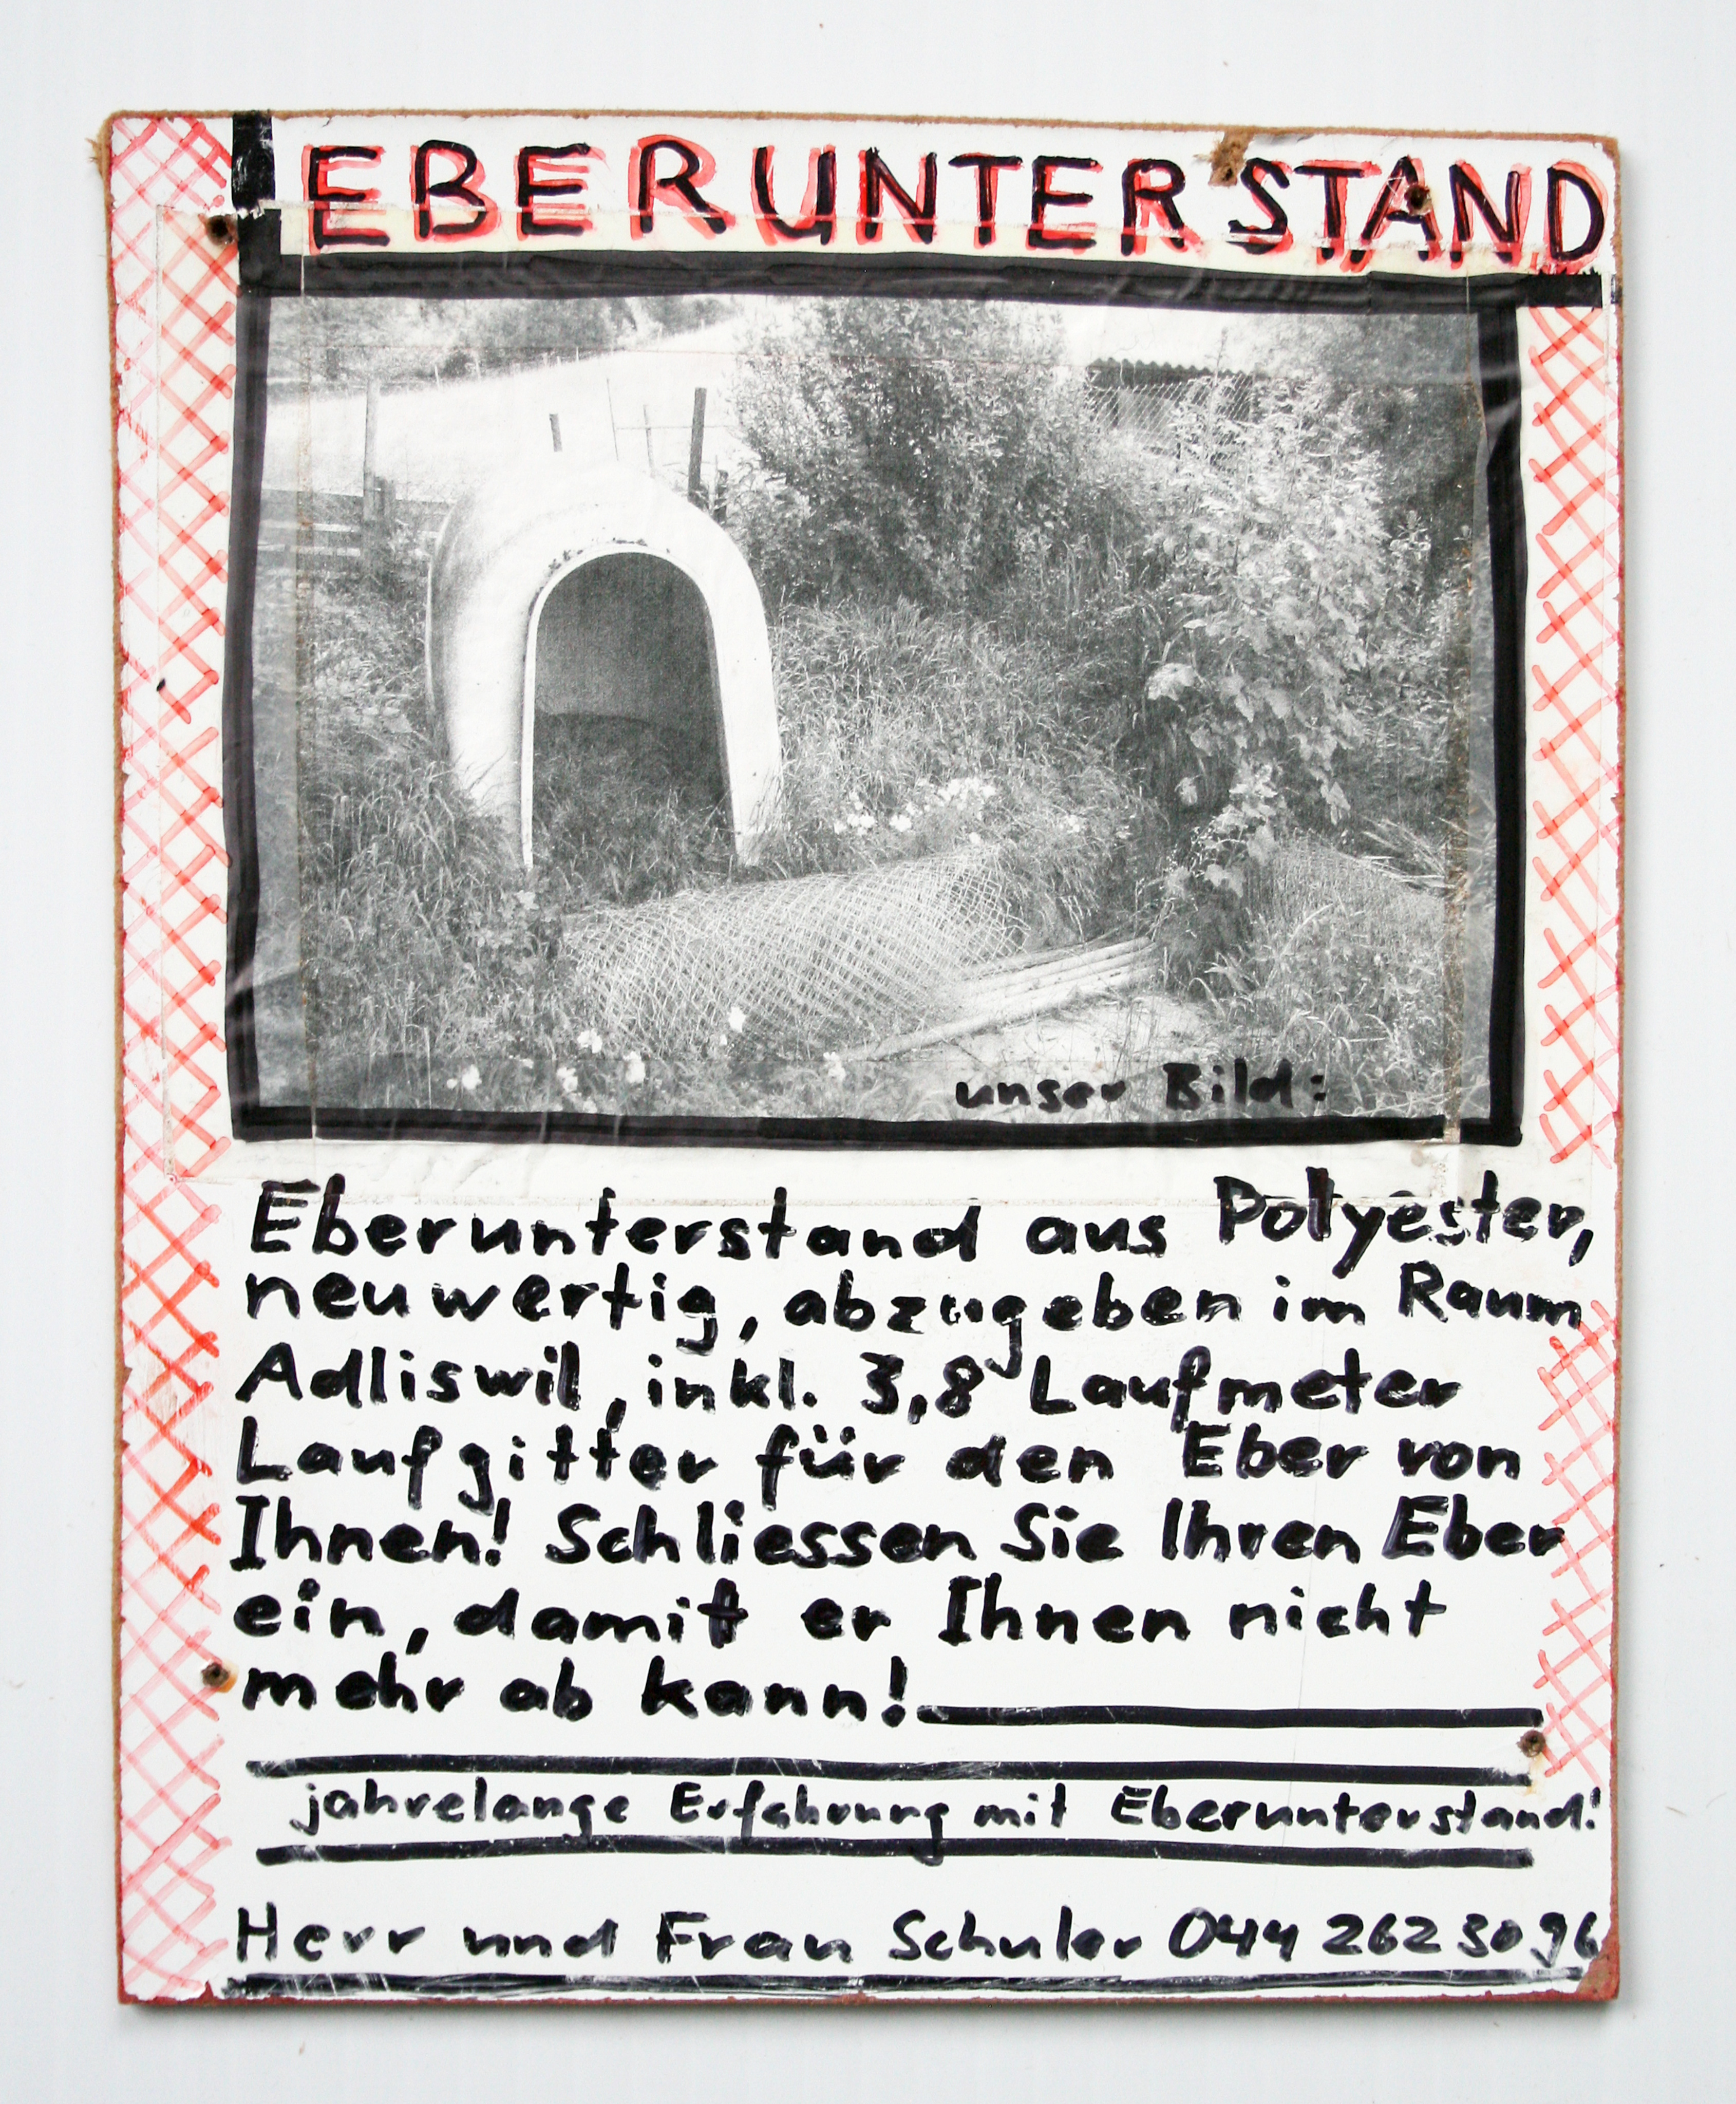 EBERUNTERSTAND
unser Bild:
Eberunterstand aus Polyester,
neuwertig, abzugeben im Raum
Adliswil, inkl. 3,8 Laufmeter
Laufgitter für den Eber von
Ihnen! Schliessen Sie Ihren Eber
ein, damit er Ihnen nicht
mehr ab kann!
jahrelange Erfahrung mit Eberunterstand!
Herr und Frau Schuler 044 262 30 96